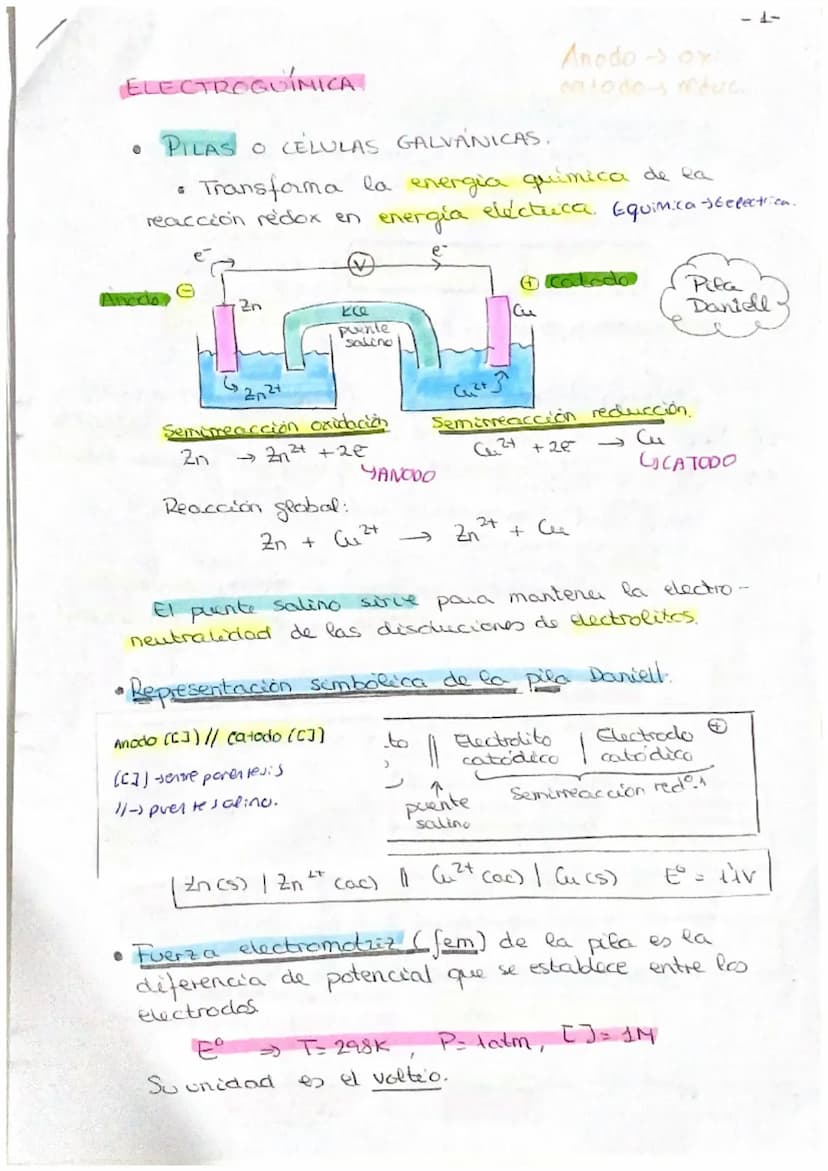 - 1 -
Anodo → oxi
catodo → reduc.
ELECTROQUÍMICA
• PILAS O CÉLULAS GALVÁNICAS.
• Transforma la energía química de la
reacción redox en energía eléctrica. Equimica → Eelectrica.
e⁻ V e⁻
Anodo ⊖ Zn KCl puente salino Cu ⊕ catodo
Pila
Daniell
Zn²⁺ Cu²⁺
Semirreacción oxidación Semirreacción reducción.
Zn → Zn²⁺ + 2e⁻ Cu²⁺ + 2e⁻ → Cu
↳ ANODO ↳ CATODO
Reacción global:
Zn + Cu²⁺ → Zn²⁺ + Cu
El puente salino sirve para mantener la electro-
neutralidad de las disoluciones de electrolitos.
• Representación simbólica de la pila Daniell.
Anodo ([]) // catodo ([])
([]) → entre parentesis
// → puente salino.
to || Electrolito | Electrodo ⊕
catódico catódico
↑
puente Semirreacción red
salino
Zn(s) | Zn²⁺ (ac) || Cu²⁺ (ac) | Cu(s) E° = 1'1V
• Fuerza electromotriz (fem) de la pila es la
diferencia de potencial que se establece entre los
electrodos.
E° ⇒ T = 298K, P = 1atm, [ ] = 1M
Su unidad es el voltio.